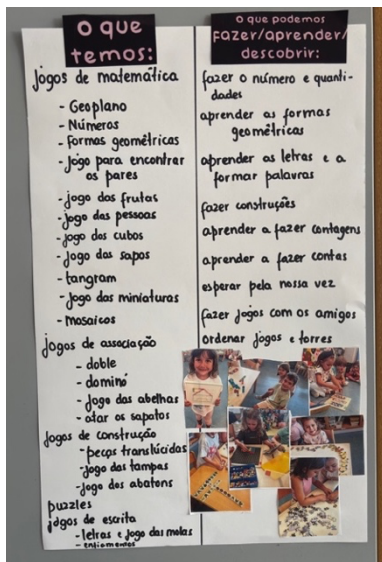 O que
temos:
jogos de matemática
- Geoplano
- Números
- Formas geométricas
- jogo para encontrar
os pares
- jogo das frutas
- jogo das pessoas
- jogo dos cubos
- jogo dos sapos
- tangram
- jogo das miniaturas
- mosaicos
jogos de associação
- doble
- dominó
- jogo das abelhas
- atar os sapatos
jogos de construção
- peças translúcidas
- jogo das tampas
- jogo dos abatons
puzzles
jogos de escrita
- letras e jogo das molas
- enfiamentos
O que podemos
fazer/aprender/
descobrir:
fazer o número e quanti-
dades
aprender as formas
geométricas
aprender as letras e a
formar palavras
fazer construções
aprender a fazer contagens
aprender a fazer contas
esperar pela nossa vez
fazer jogos com os amigos
Ordenar jogos e torres